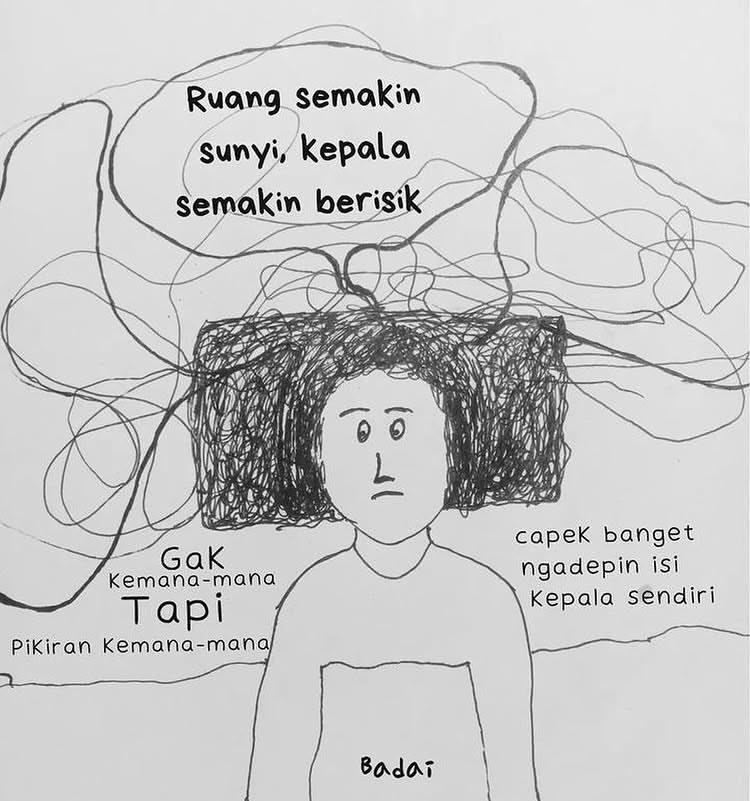 Ruang semakin
sunyi, kepala
semakin berisik
Gak
Kemana-mana
Tapi
Pikiran Kemana-mana
capek banget
ngadepin isi
Kepala sendiri
Badai